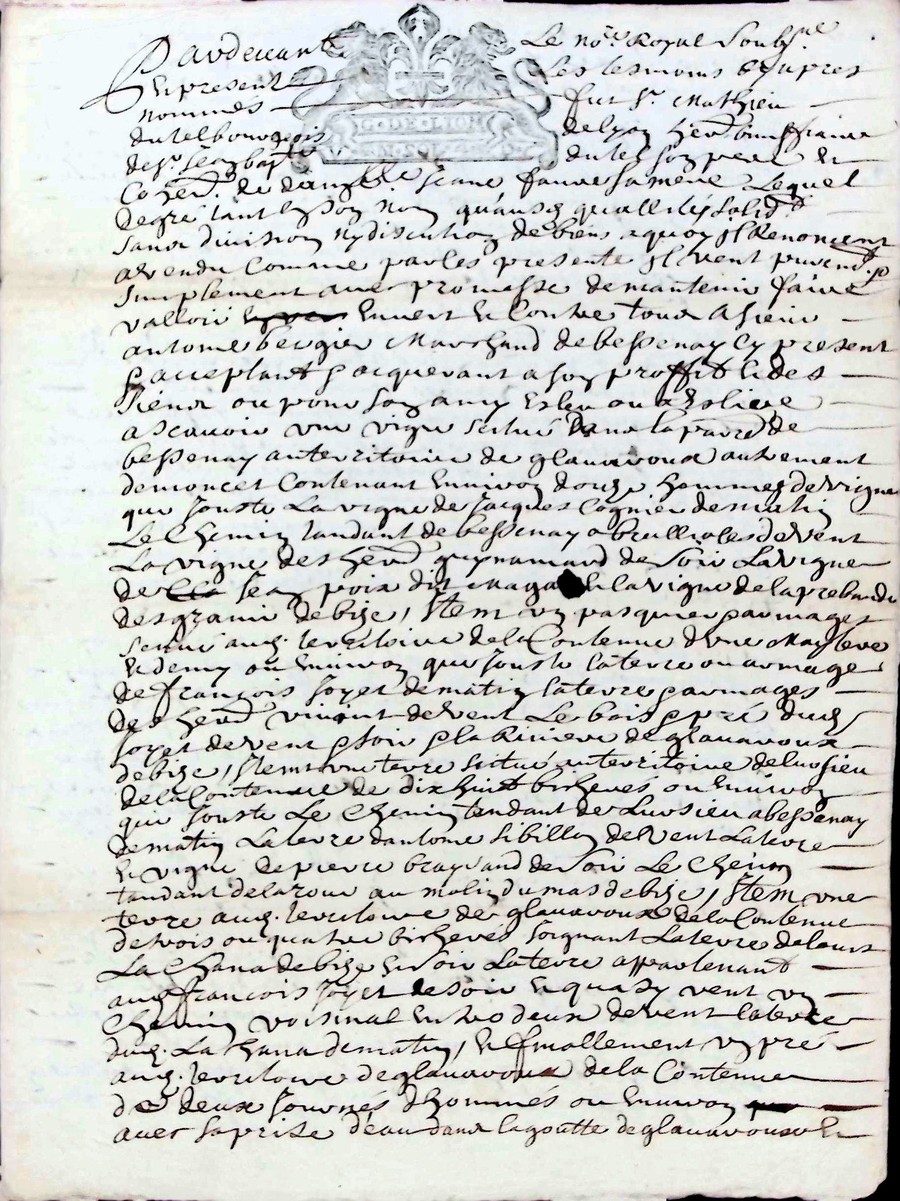 Pardevant Le no.re Royal Soubs.ne
Et present Les tesmoins cy apres
nommés fut S.r Mathieu
dutel bourgeois de Lyon
de S.r Jean bap.te dutel son pere Et
Coher. de Jeane faure sa mere Lequel
de gré tant En son nom qu'ausd. quallités solid.t
sans division ny discution de biens a quoy Il Renoncent
a vendu Comme par les presente Il vent purem.t &
simplement avec promesse de maintenir faire
valloir Envers Et Contre tous A sieur
antoine bergier Marchand de bessenay Cy present
& acceptant & acquerant a son proffit & des
siens ou pour son amy Esleu ou a Eslire
ascavoir une vigne scitué dans la parr. de
bessenay au territoire de glauavoux autrement
de moncet Contenant Environ douze hommes de vigne
que Jouste La vigne de Jacques Cognier de matin
Le Chemin tandant de bessenay a brullioles de vent
La vigne des her. guynamard de soir La vigne
de Jean poix dit la vigne de la prebande
des grani de bize, Item un pasquier & armages
scitué aud. territoire de la Contenue d'une
Et demy ou Environ que Jouste la terre ou armage
de francois Joyet de matin la terre & armages
des her. vincent de vent Le bois & pré dud.
Joyet de vent & soir & la Riviere de glauavoux
de bize, Item une terre scitué au territoire de Lussieu
de la Contenue de dix huit bicherés ou Environ
que Jouste Le Chemin tendant de Lussieu a bessenay
de matin La terre d'antoine sibillon de vent La terre
Et vigne de pierre brayrand de soir Le Chemin
tandant de la roue au molin du mas de bize, Item une
terre aud. territoire de glauavoux de la Contenue
de trois ou quatre bicherés Joignant La terre de
La Chana de bize Et soir La terre appartenant
aud. francois Joyet de soir Et quasy vent un
Chemin voisinal Entre deux de vent la terre
dud. La Chana de matin, Et finallement un pré
aud. territoire de glauavoux de la Contenue
de deux Journés d'hommes ou Environ
avec sa prise d'eau dans la goutte de glauavoux Et